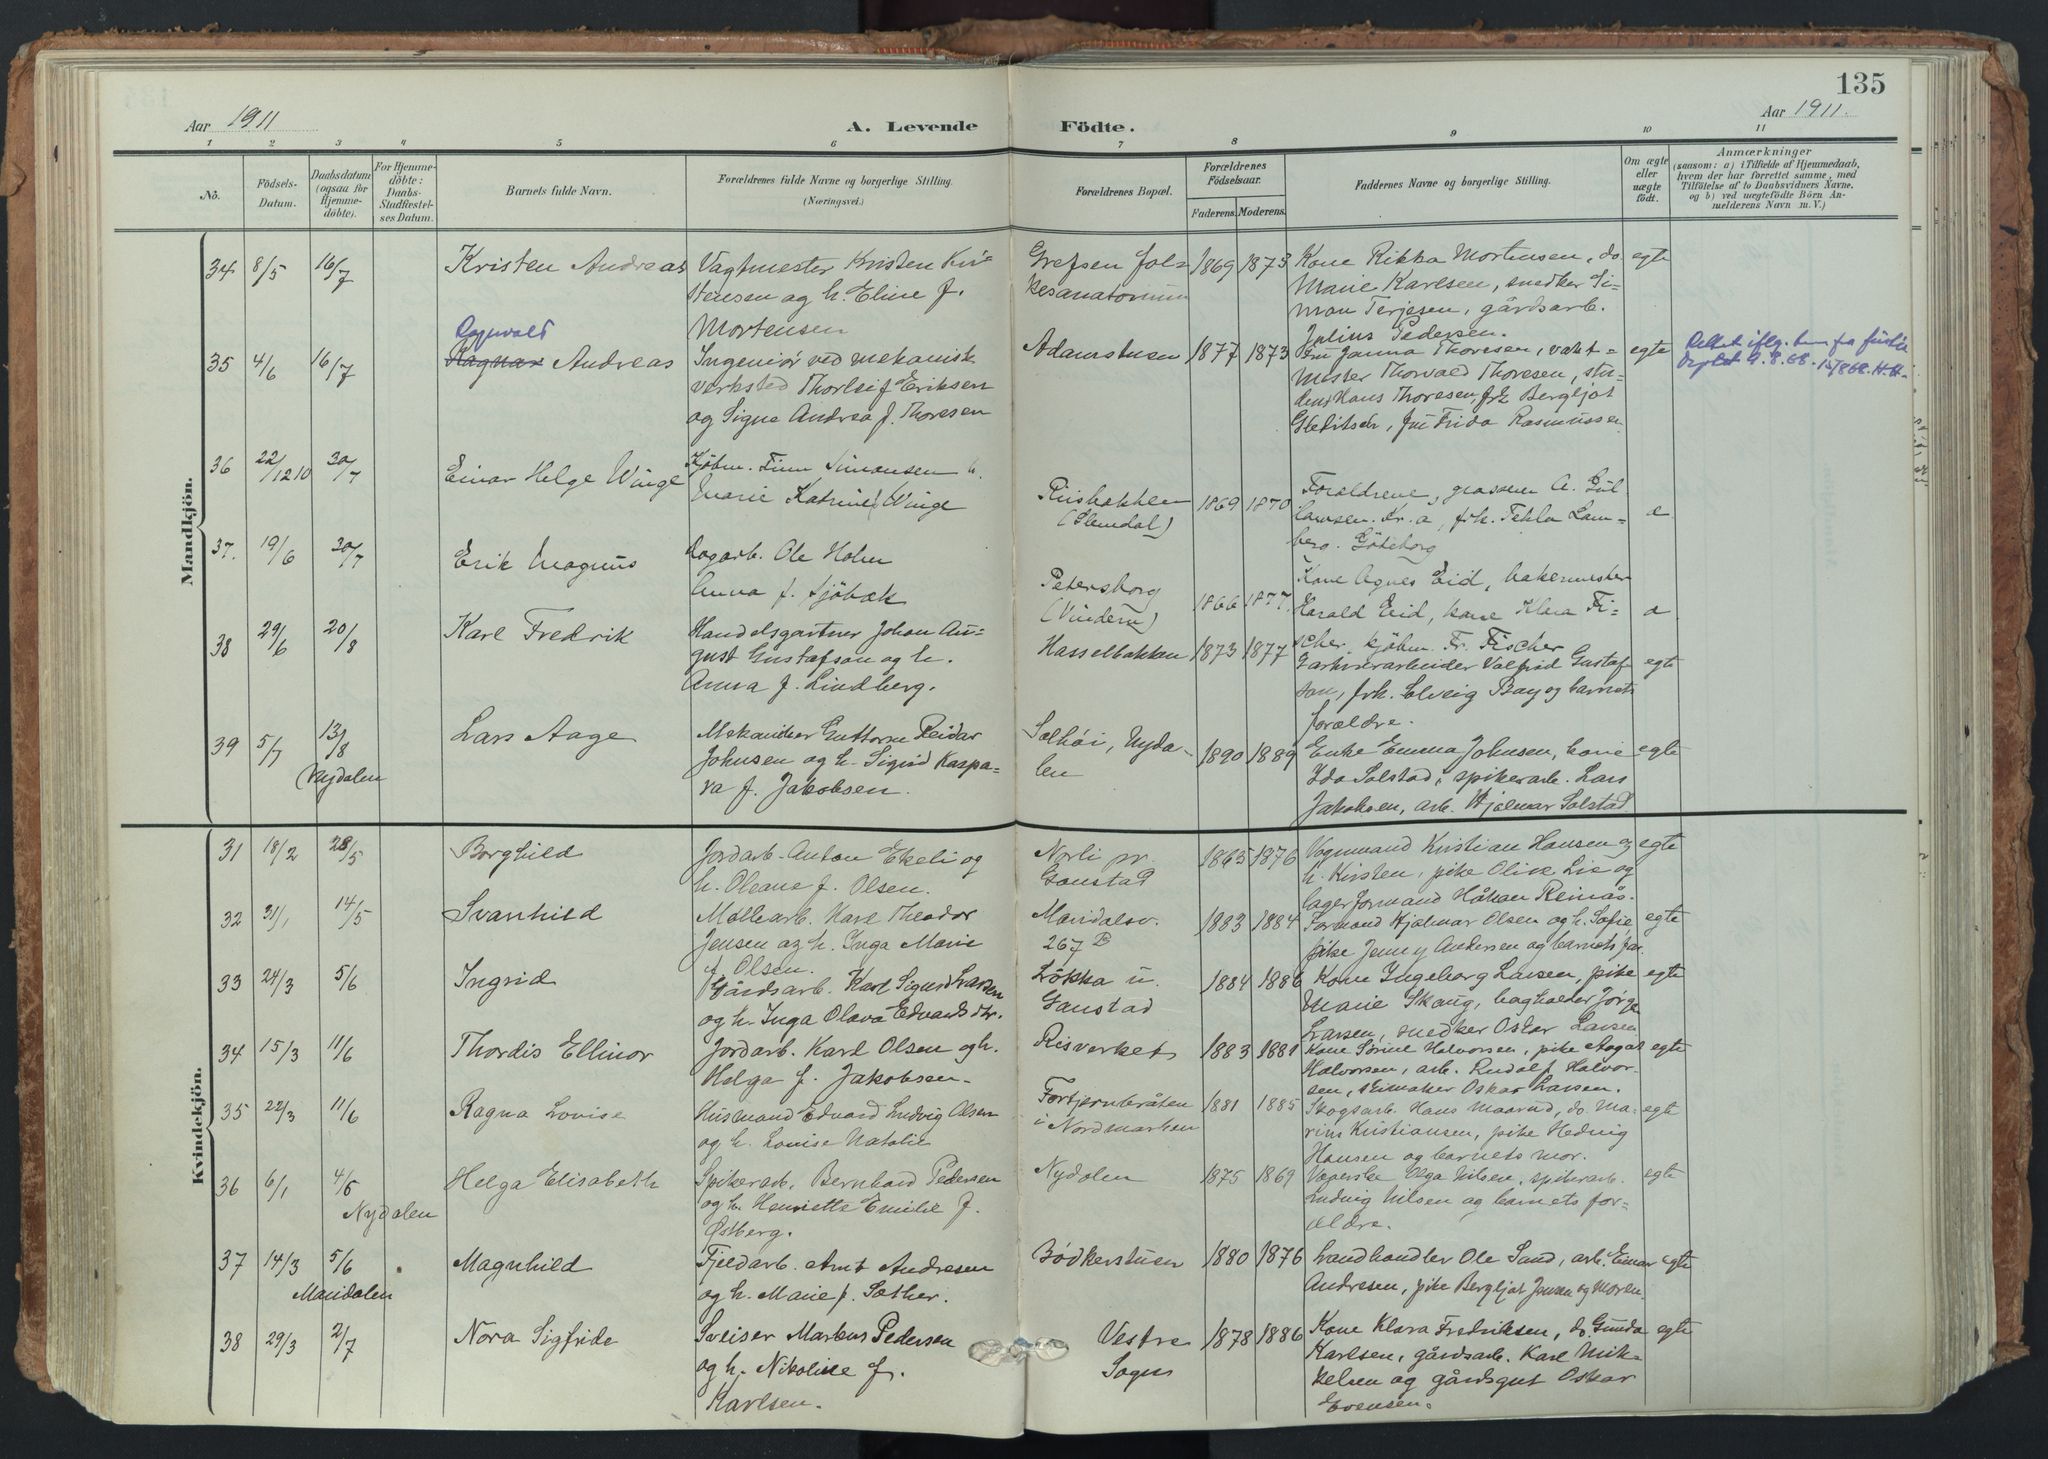 135
Aar 1911
A. Levende Födte.
Aar 1911.
1 2 3 4 5 6 7 8 9 10 11
No.
Födsels-Datum.
Daabsdatum (ogsaa for Hjemmedöbte).
For Hjemmedöbte: Daabs-Stadfæstelses Datum.
Barnets fulde Navn.
Forældrenes fulde Navne og borgerlige Stilling.
(Næringsvei.)
Forældrenes Bopæl.
Forældrenes Födselsaar.
Faderens. Moderens.
Faddernes Navne og borgerlige Stilling.
Om ægte eller uægte födt.
Anmærkninger
(saasom: a) i Tilfælde af Hjemmedaab, hvem der har forrettet samme, med Tilföielse af to Daabsvidners Navne. og b) ved uægtefödte Börn Anmelderens Navn m. V.)
Mandkjön.
34 8/5 16/7 Kristen Andreas
Vagtmester Kristen Kristensen og h. Eline f. Mortensen
Grefsen Folkesanatorium 1869 1873
Kone Rikka Mortensen, do
Marie Karlsen, snedker Simon Terjesen, gårdsarb.
Julius Pedersen.
egte
35 4/6 16/7 Ragnvald
Ragnar Andreas
Ingeniør ved mekanisk
verksted Thorleif Eriksen
og Signe Andrea f. Thoresen
Adamstuen 1877 1873
Fru Janna Thoresen, vakt=
mester Thorvald Thoresen, stu=
dent Hans Thoresen, frk Bergljot
Gleditsch, fru Frida Rasmussen
egte
36 22/12 10 30/7 Einar Helge Winge
Kjöbm. Finn Simonsen h.
Marie Katrine Winge
Risbakken
(Slemdal) 1869 1870
Forældrene, grosserer A.
Kr.a, frk. Tekla Lam=
berg. Göteborg
e.
37. 19/6 30/7 Erik Magnus
Dagarb. Ole Holm
Anna f. Sjöbæk
Petersborg
(Vindern) 1866 1877.
Kone Agnes Eid, bakermester
Harald Eid, kone Klara Fi=
scher, kjöbm. Fr. Fischer
38 29/6 20/8 Karl Fredrik
Handelsgartner Johan Au=
gust Gustafson og h.
Anna f. Lindberg.
Hasselbakken 1873 1877
Gartnerarbeider Valfrid Gustaf
son, frk. Solveig Bay og barnets
forældre.
egte
39 5/7 13/8 (Nydalen Lars Aage
Mekaniker Guttorm Reidar
Johnsen og h. Sigrid Kaspa-
ra f. Jakobsen.
Solhöi, Nyda-
len 1890 1889
Enke Emma Johnsen, kone
Ida Solstad, spikerarb. Lars
Jakobsen, arb. Hjalmar Solstad
egte
Kvindekjön.
31 18/2 28/5 Borghild
Jordarb. Anton Ekeli og
h. Oleane f. Olsen.
Norli pr.
Gaustad 1865 1876
Vognmand Kristian Hansen og
h. Kirsten, pike Olive Lie og
lagerformand Håkon Reinås.
egte
32 31/1 14/5 Svanhild
Möllearb. Karl Theodor
Jensen og h. Inga Marie
f. Olsen.
Maridalsv.
267 B 1883 1884
Formand Hjalmar Olsen og h. Sofie,
pike Jenny Andersen og barnets far.
egte
33 24/3 5/6 Ingrid
Gårdsarb. Karl Sigurd Larsen
og h. Inga Olava Edvardsdtr.
Lökka u.
Gaustad 1884 1886
Kone Ingeborg Larsen, pike
Marie Skaug, bagholder Jörge
Larsen, snedker Oskar Larsen
egte
34 15/3 11/6 Thordis Ellinor
Jordarb. Karl Olsen og h.
Helga f. Jakobsen.
Risverket 1883 1881
Kone Sörine Halvorsen, pike Aagot
Halvorsen, arb. Rudolf Halvor-
sen, skomaker Oskar Larsen.
egte
35 22/3 11/6 Ragna Lovise
Husmand Edvard Ludvig Olsen
og h. Louise Natalie
Fortjernbråten
i Nordmarken 1881 1885
Skogsarb. Hans Maarud, do. Ma-
rius Kristiansen, pike Hedvig
Hansen og barnets mor.
egte
36 6/1 4/6 Nydalen Helga Elisabeth
Spikerarb. Bernhard Pedersen
og h. Henriette Emilie f.
Østberg.
Nydalen 1875 1869
Væverske Olga Nilsen, spikerarb.
Ludvig Nilsen og barnets for-
ældre.
egte
37 14/3 5/6 Maridalen Magnhild
Fjeldarb. Arnt Andresen
og h. Marie f. Sæther.
Bödkerstuen 1880 1876
Landhandler Ole Sand, arb. Einar
Andresen, pike Bergljot Jensen og moren.
egte
38 29/3 2/7 Nora Sigfride
Sveiser Markus Pedersen
og h. Nikoline f.
Karlsen.
Vestre
Sogn 1878 1886
Kone Klara Fredriksen, do. Gunda
Karlsen, gårdsarb. Karl Mik=
kelsen og gårdsgut Oskar
Evensen.
egte